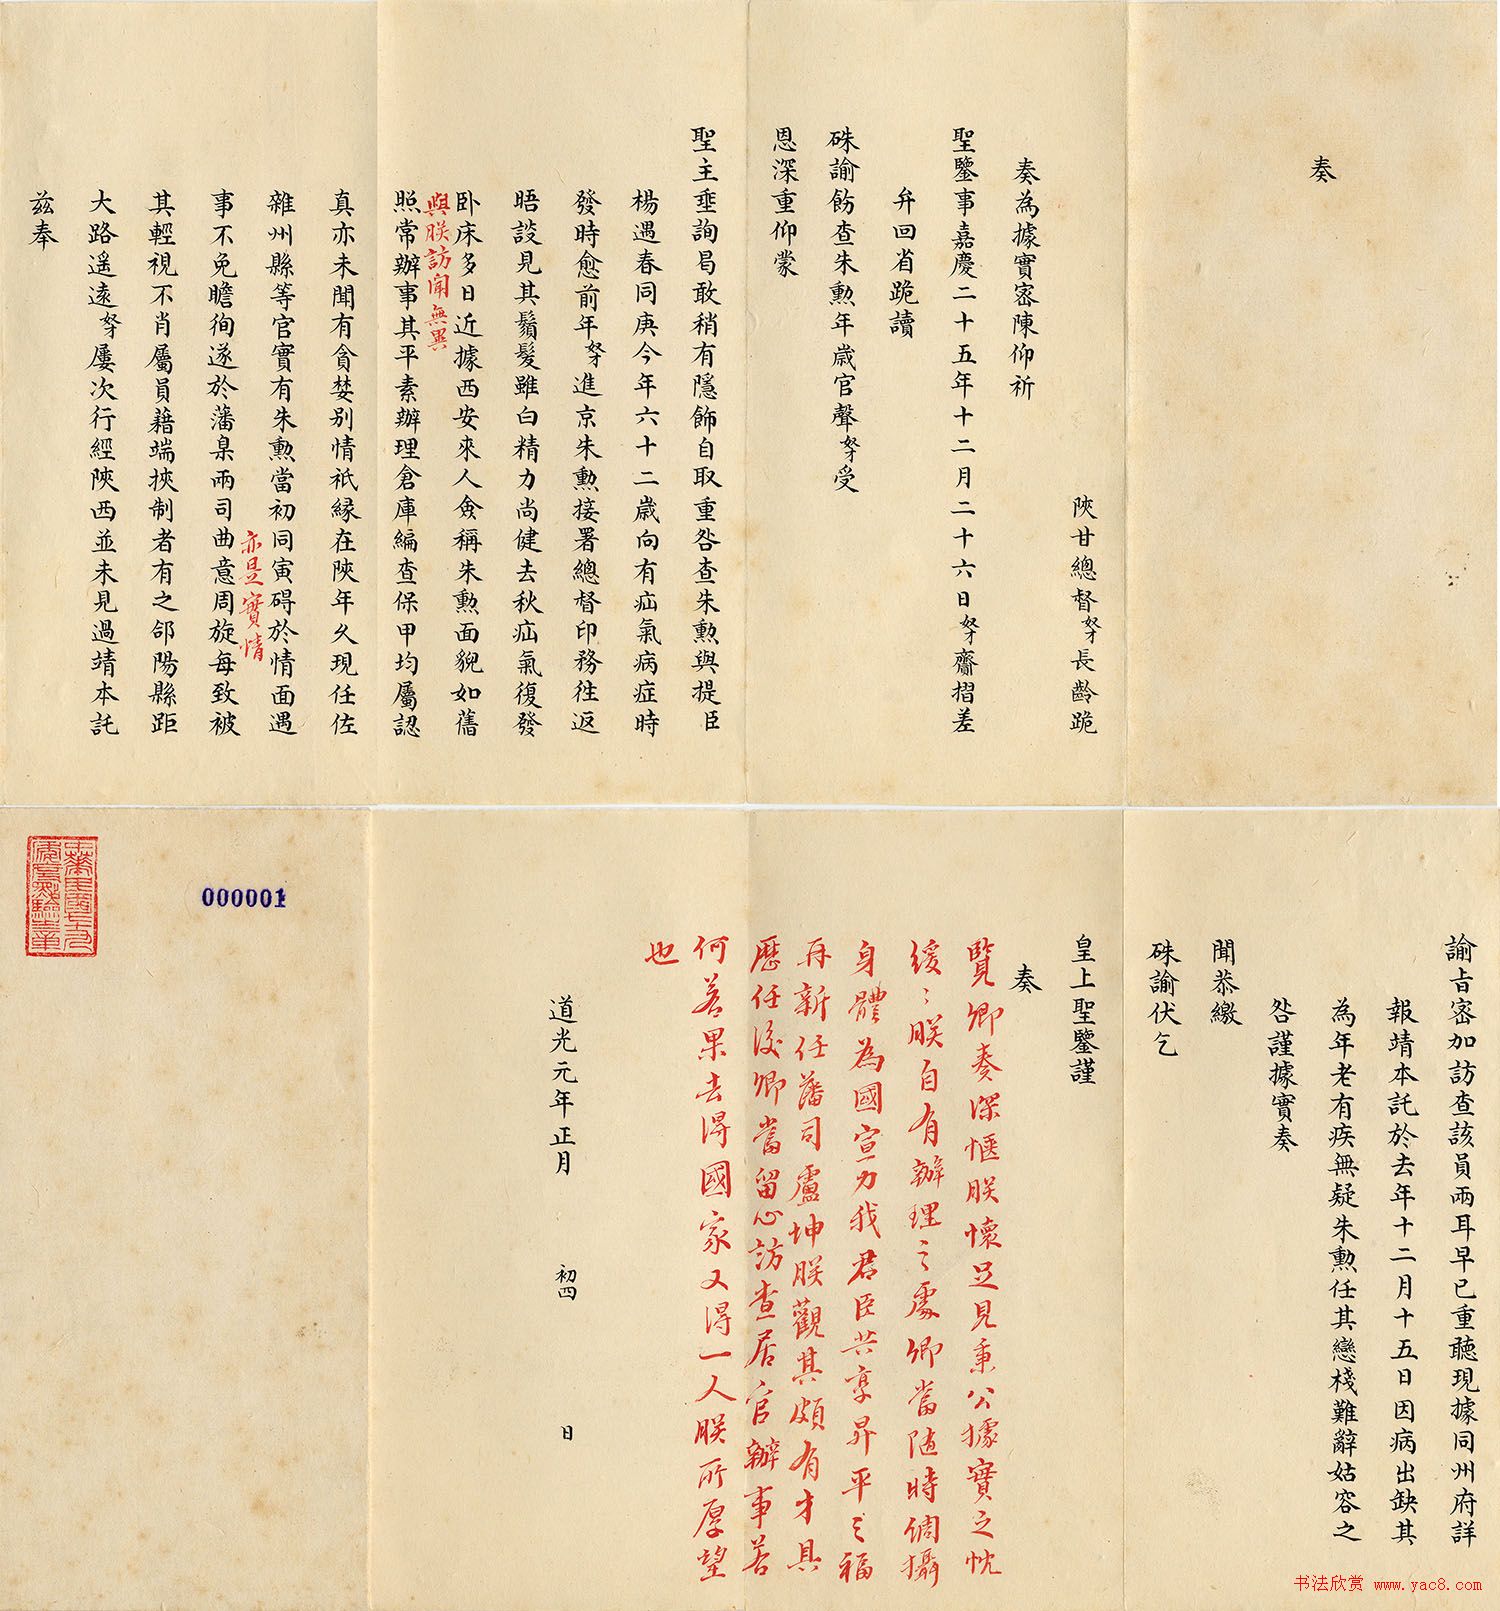 奏
陝甘總督奴才長齡跪
奏為據實密陳仰祈
聖鑒事嘉慶二十五年十二月二十六日奴才齎摺差
弁回省跪讀
硃諭飭查朱勲年歲官聲奴才受
恩深重仰蒙
聖主垂詢曷敢稍有隱飾自取重咎查朱勲與提臣
楊遇春同庚今年六十二歲向有疝氣病症時
發時愈前年奴才進京朱勲接署總督印務徃返
晤談見其鬚髮雖白精力尚健去秋疝氣復發
卧床多日近據西安來人僉稱朱勲面貌如舊
與朕訪聞無異
照常辦事其平素辦理倉庫編查保甲均屬認
真亦未聞有貪婪別情祇縁在陝年久現任佐
雜州縣等官實有朱勲當初同寅碍於情面遇
亦是實情
事不免瞻徇遂於藩臬兩司曲意周旋每致被
其輕視不肖屬員藉端挾制者有之郃陽縣距
大路遥遠奴才屢次行經陝西並未見過靖本託
茲奉
諭旨密加訪查該員兩耳早已重聽現據同州府詳
報靖本託於去年十二月十五日因病出缺其
為年老有疾無疑朱勲任其戀棧難辭姑容之
咎謹據實奏
聞恭繳
硃諭伏乞
皇上聖鑒謹
奏
覽卿奏深惬朕懷足見秉公據實之忱
緩緩朕自有辦理之處卿當隨時調攝
身體為國宣力我君臣共享昇平之福
再新任藩司盧坤朕觀其頗有才具
歷任後卿當留心訪查居官辦事若
何若果去得國家又得一人朕所厚望
也
道光元年正月 初四 日
000001
书法欣赏 www.yac8.com